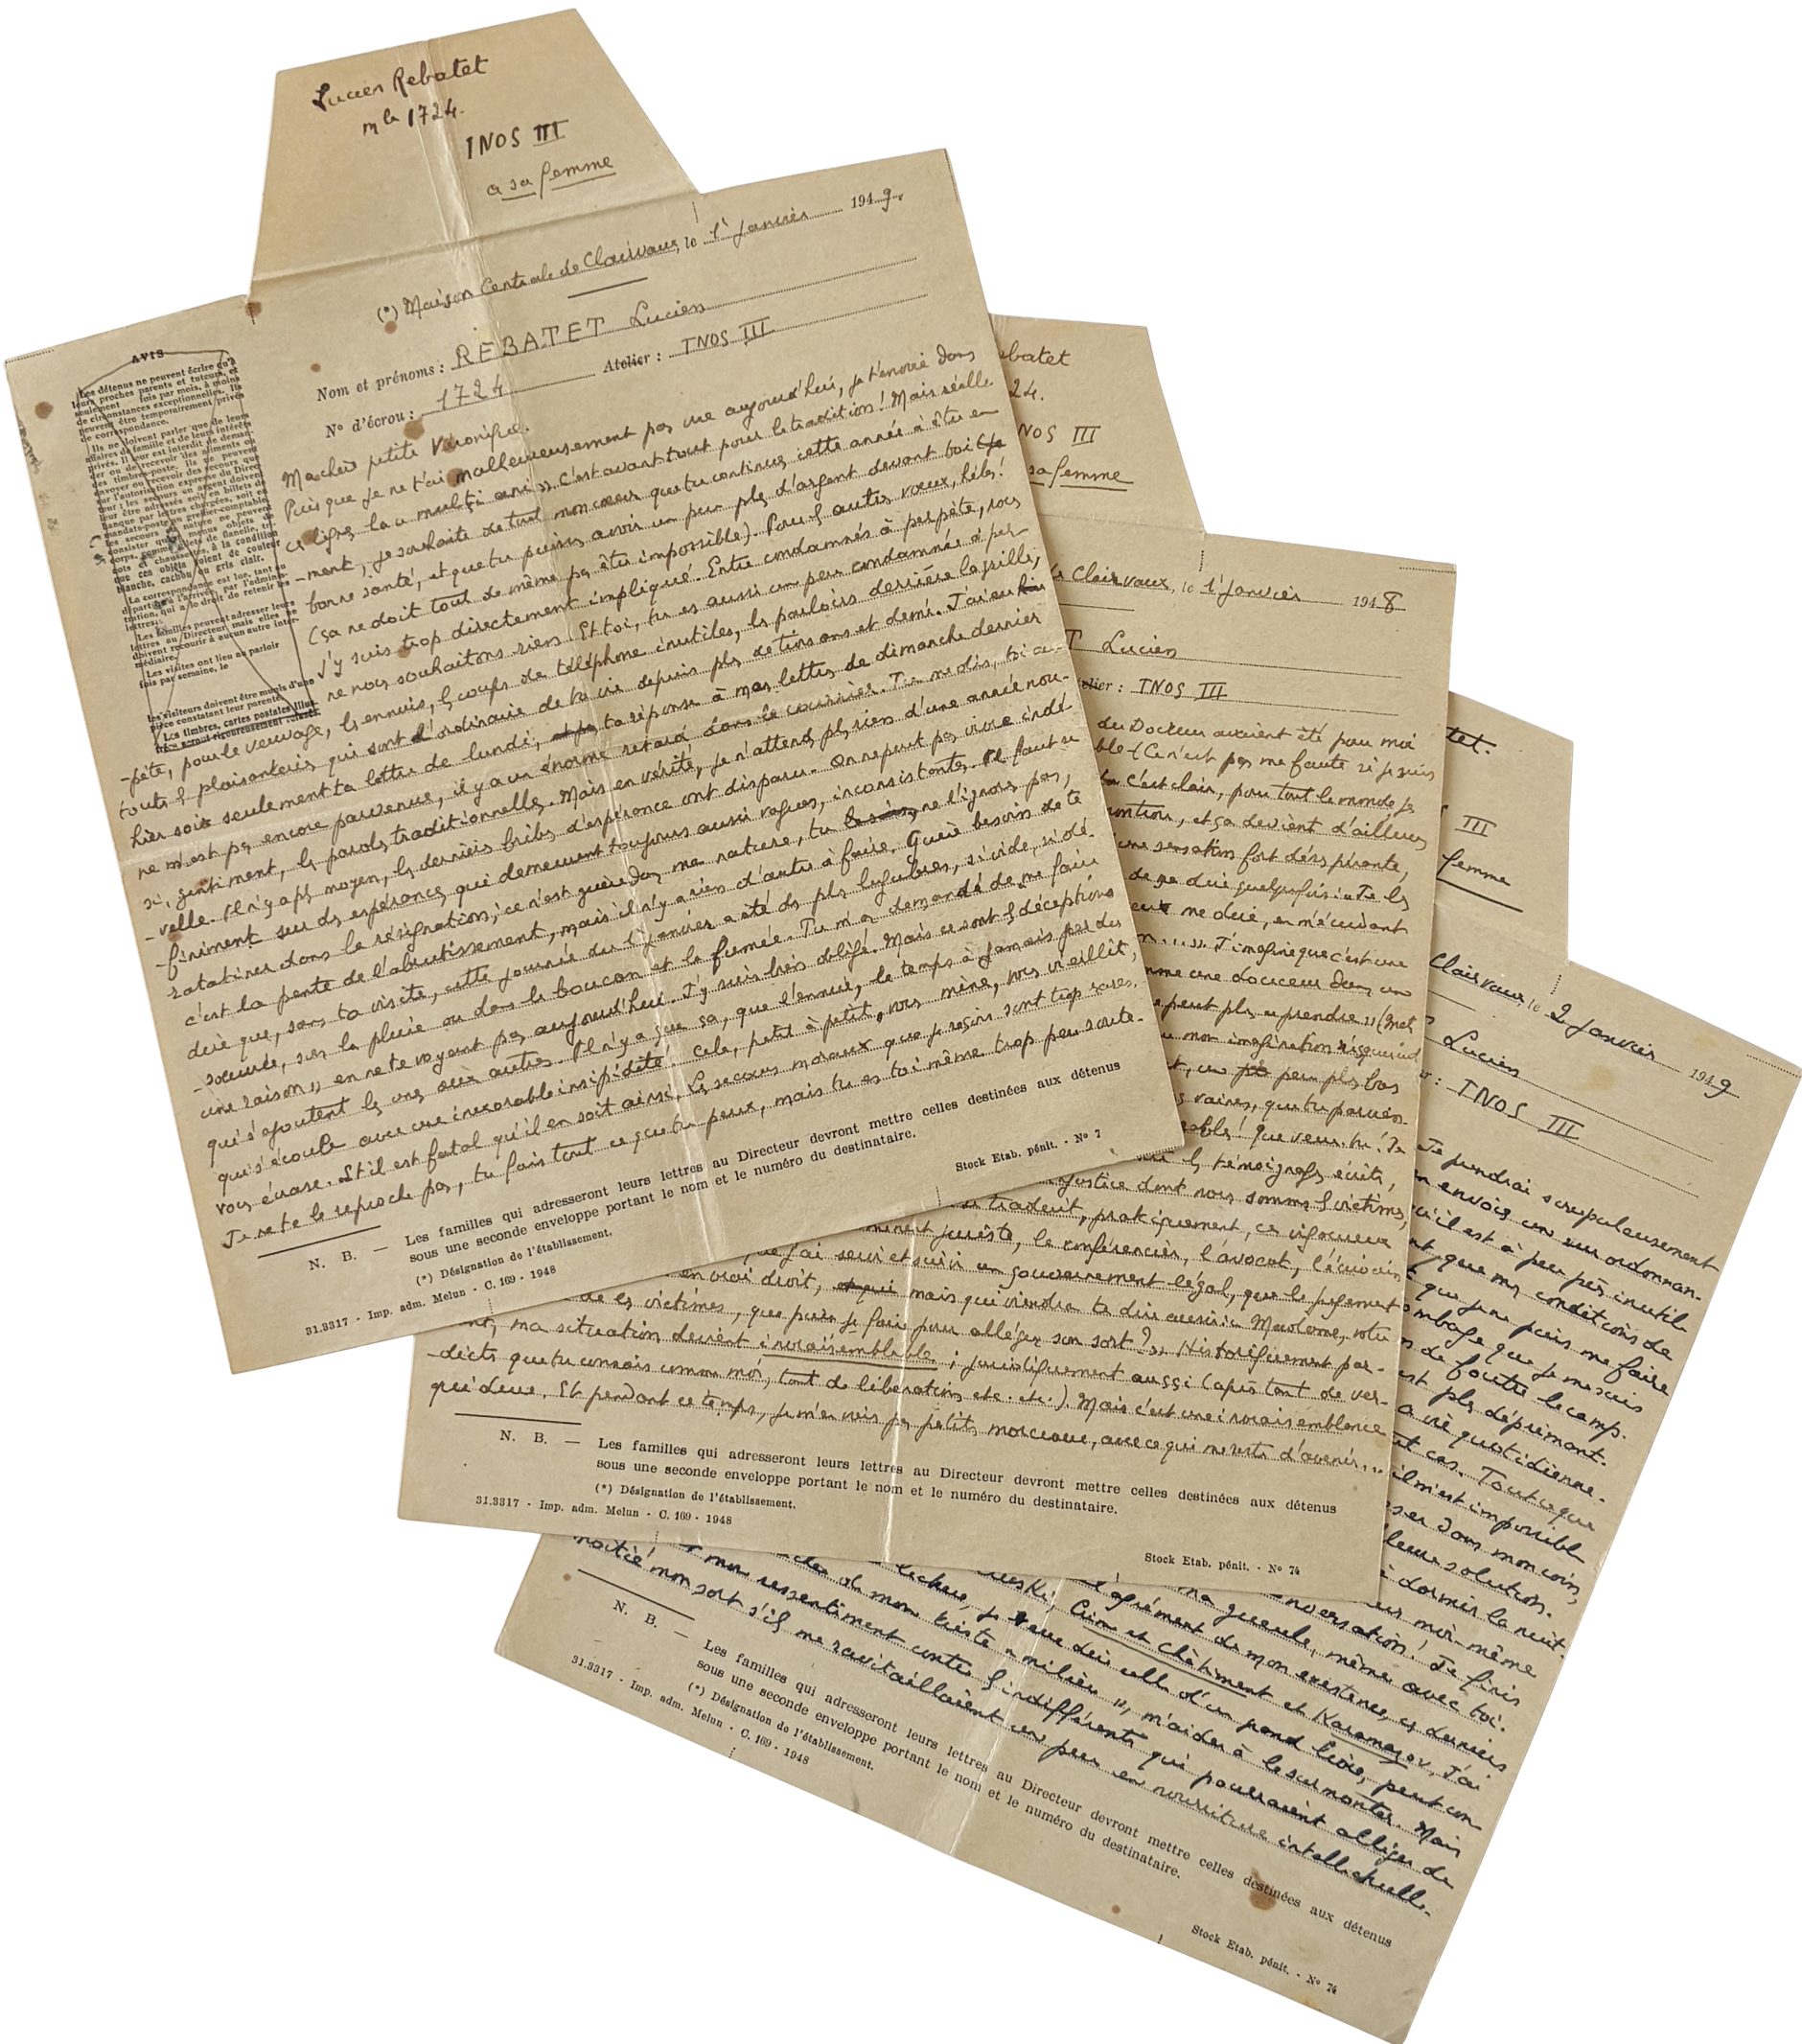 Lucien Rebatet
mle 1724.
INOS III
a sa femme
(*) Maison Centrale de Clairvaux, le 1er Janvier 1949.
Nom et prénoms : REBATET Lucien
N° d'écrou : 1724 Atelier : INOS III
AVIS
Les détenus ne peuvent écrire qu'à
leurs proches parents et tuteurs, et
seulement fois par mois, à moins
de circonstances exceptionnelles. Ils
peuvent être temporairement privés
de correspondance.
Ils ne doivent parler que de leurs
affaires de famille et de leurs intérêts
privés. Il leur est interdit de deman-
der ou de recevoir des aliments ou
des timbres-poste. Ils ne peuvent
envoyer ou recevoir des secours que
sur l'autorisation expresse du Direc-
teur ; les secours en argent doivent
leur être adressés soit en billets de
banque par lettres chargées, soit en
mandats-poste au greffier-comptable,
les secours en nature ne peuvent
consister qu'en menus objets de
corps, comme gilets de flanelle, tri-
cots et chaussettes, à la condition
que ces objets soient de couleur
blanche, cachou ou gris clair.
La correspondance est lue, tant au
départ qu'à l'arrivée, par l'adminis-
tration, qui a le droit de retenir les
lettres.
Les familles peuvent adresser leurs
lettres au Directeur, mais elles ne
doivent recourir à aucun autre inter-
médiaire.
Les visites ont lieu au parloir
fois par semaine, le
Les visiteurs doivent être munis d'une
pièce constatant leur parenté.
Les timbres, cartes postales illus-
trées seront rigoureusement refusés
Ma chère petite Véronique.
Puisque je ne t'ai malheureusement pas vue aujourd'hui, je t'envoie dans
ces lignes la « multi ani », c'est avant tout pour la tradition ! Mais réelle-
-ment, je souhaite de tout mon cœur que tu continues cette année à être en
bonne santé, et que tu puisses avoir un peu plus d'argent devant toi
(ça ne doit tout de même pas être impossible). Pour les autres vœux, hélas !
j'y suis trop directement impliqué. Entre condamnés à perpète, nous
ne nous souhaitons rien. Et toi, tu es aussi un peu condamnée à per-
-pète, pour le veuvage, les ennuis, les coups de téléphone inutiles, les parloirs derrière la grille,
toutes les plaisanteries qui sont l'ordinaire de ta vie depuis plus de trois ans et demi. J'ai eu
hier soir seulement ta lettre de lundi, ta réponse à mes lettres de dimanche dernier
ne m'est pas encore parvenue, il y a un énorme retard dans le courrier. Tu me dis, toi au-
si, gentiment, les paroles traditionnelles. Mais en vérité, je n'attends plus rien d'une année nou-
-velle. Il n'y a plus moyen, les derniers bribes d'espérance ont disparu. On ne peut pas vivre indé-
finiment sur des espérances qui demeurent toujours aussi vagues, inconsistantes. Il faut se
ratatiner dans la résignation ; ce n'est guère dans ma nature, tu ne l'ignores pas,
c'est la pente de l'abrutissement, mais il n'y a rien d'autre à faire. Guère besoin de te
dire que, sans ta visite, cette journée du 1er janvier a été des plus lugubres, si vide, si dé-
-sœuvrée, sous la pluie ou dans le boucan et la fumée. Tu m'as demandé de « me faire
une raison » en ne te voyant pas aujourd'hui. J'y suis bien obligé. Mais ce sont les déceptions
qui s'ajoutent les unes aux autres. Il n'y a que ça, que l'ennui, le temps à jamais perdu
qui s'écoule avec une inexorable insipidité. Cela, petit à petit, vous mine, vous vieillit,
vous écrase. Et il est fatal qu'il en soit ainsi. Les secours moraux que je reçois sont trop rares.
Je ne te le reproche pas, tu fais tout ce que tu peux, mais tu es toi même trop peu soute-
N. B. — Les familles qui adresseront leurs lettres au Directeur devront mettre celles destinées aux détenus
sous une seconde enveloppe portant le nom et le numéro du destinataire.
(*) Désignation de l'établissement.
31.3317 - Imp. adm. Melun - C. 169 - 1948
Stock Etab. pénit. - N° 7
ebatet
24.
NOS III
sa femme
Clairvaux, le 1er Janvier 1948
T Lucien
telier : INOS III
du Docteur avaient été pour moi
ble (Ce n'est pas ma faute si je suis
c'est clair, pour tout le monde je
et ça devient d'ailleurs
une sensation fort désespérante,
de me dire quelquefois : « Je les
me dire, en m'écrivant
J'imagine que c'est une
mme une douceur dans un
peut plus « prendre »
mon imagination
un peu plus bas
vaines, que tu
ables ! Que veux-tu ! Je
les témoignages écrits,
justice dont nous sommes les victimes,
traduit, pratiquement, ces vigoureux
minent juriste, le conférencier, l'avocat, l'écrivain
que j'ai servi et suivi un gouvernement légal, que le jugement
en vrai droit, mais qui viendra te dire aussi : « Madame, votre
de ces victimes, que puis-je faire pour alléger son sort ? » Historiquement par-
nt, ma situation devient invraisemblable ; juridiquement aussi (après tant de ver-
-dicts que tu connais comme moi, tant de libérations etc. etc.). Mais c'est une invraisemblance
qui dure. Et pendant ce temps, je m'en vais par petits morceaux, avec ce qui me reste d'avenir...
N. B. — Les familles qui adresseront leurs lettres au Directeur devront mettre celles destinées aux détenus
sous une seconde enveloppe portant le nom et le numéro du destinataire.
(*) Désignation de l'établissement.
31.3317 - Imp. adm. Melun - C. 169 - 1948
Stock Etab. pénit. - N° 74
tet.
III
femme
Clairvaux, le 2 Janvier 1949
Lucien
r : INOS III
Je prendrai scrupuleusement
envois un sur ordonnan-
qu'il est à peu près inutile
que mes conditions de
que je ne puis me faire
que je me suis
de foutre le camp.
est plus déprimant.
la vie quotidienne.
cas. Tout ce que
il m'est impossible
dans mon coin,
leure solution.
à dormir la nuit.
moi-même
nversation ! Je finis
ma gueule, même avec toi.
l'agrément de mon existence, ces derniers
Crime et Châtiment et Karamazov. J'ai
lecture, je veux dire celle d'un grand livre, peut con-
de mon triste « milieu », m'aider à le surmonter. Mais
mon ressentiment contre les indifférents qui pourraient alléger de
moitié mon sort s'ils me ravitaillaient un peu en nourriture intellectuelle.
N. B. — Les familles qui adresseront leurs lettres au Directeur devront mettre celles destinées aux détenus
sous une seconde enveloppe portant le nom et le numéro du destinataire.
(*) Désignation de l'établissement.
31.3317 - Imp. adm. Melun - C. 169 - 1948
Stock Etab. pénit. - N° 74